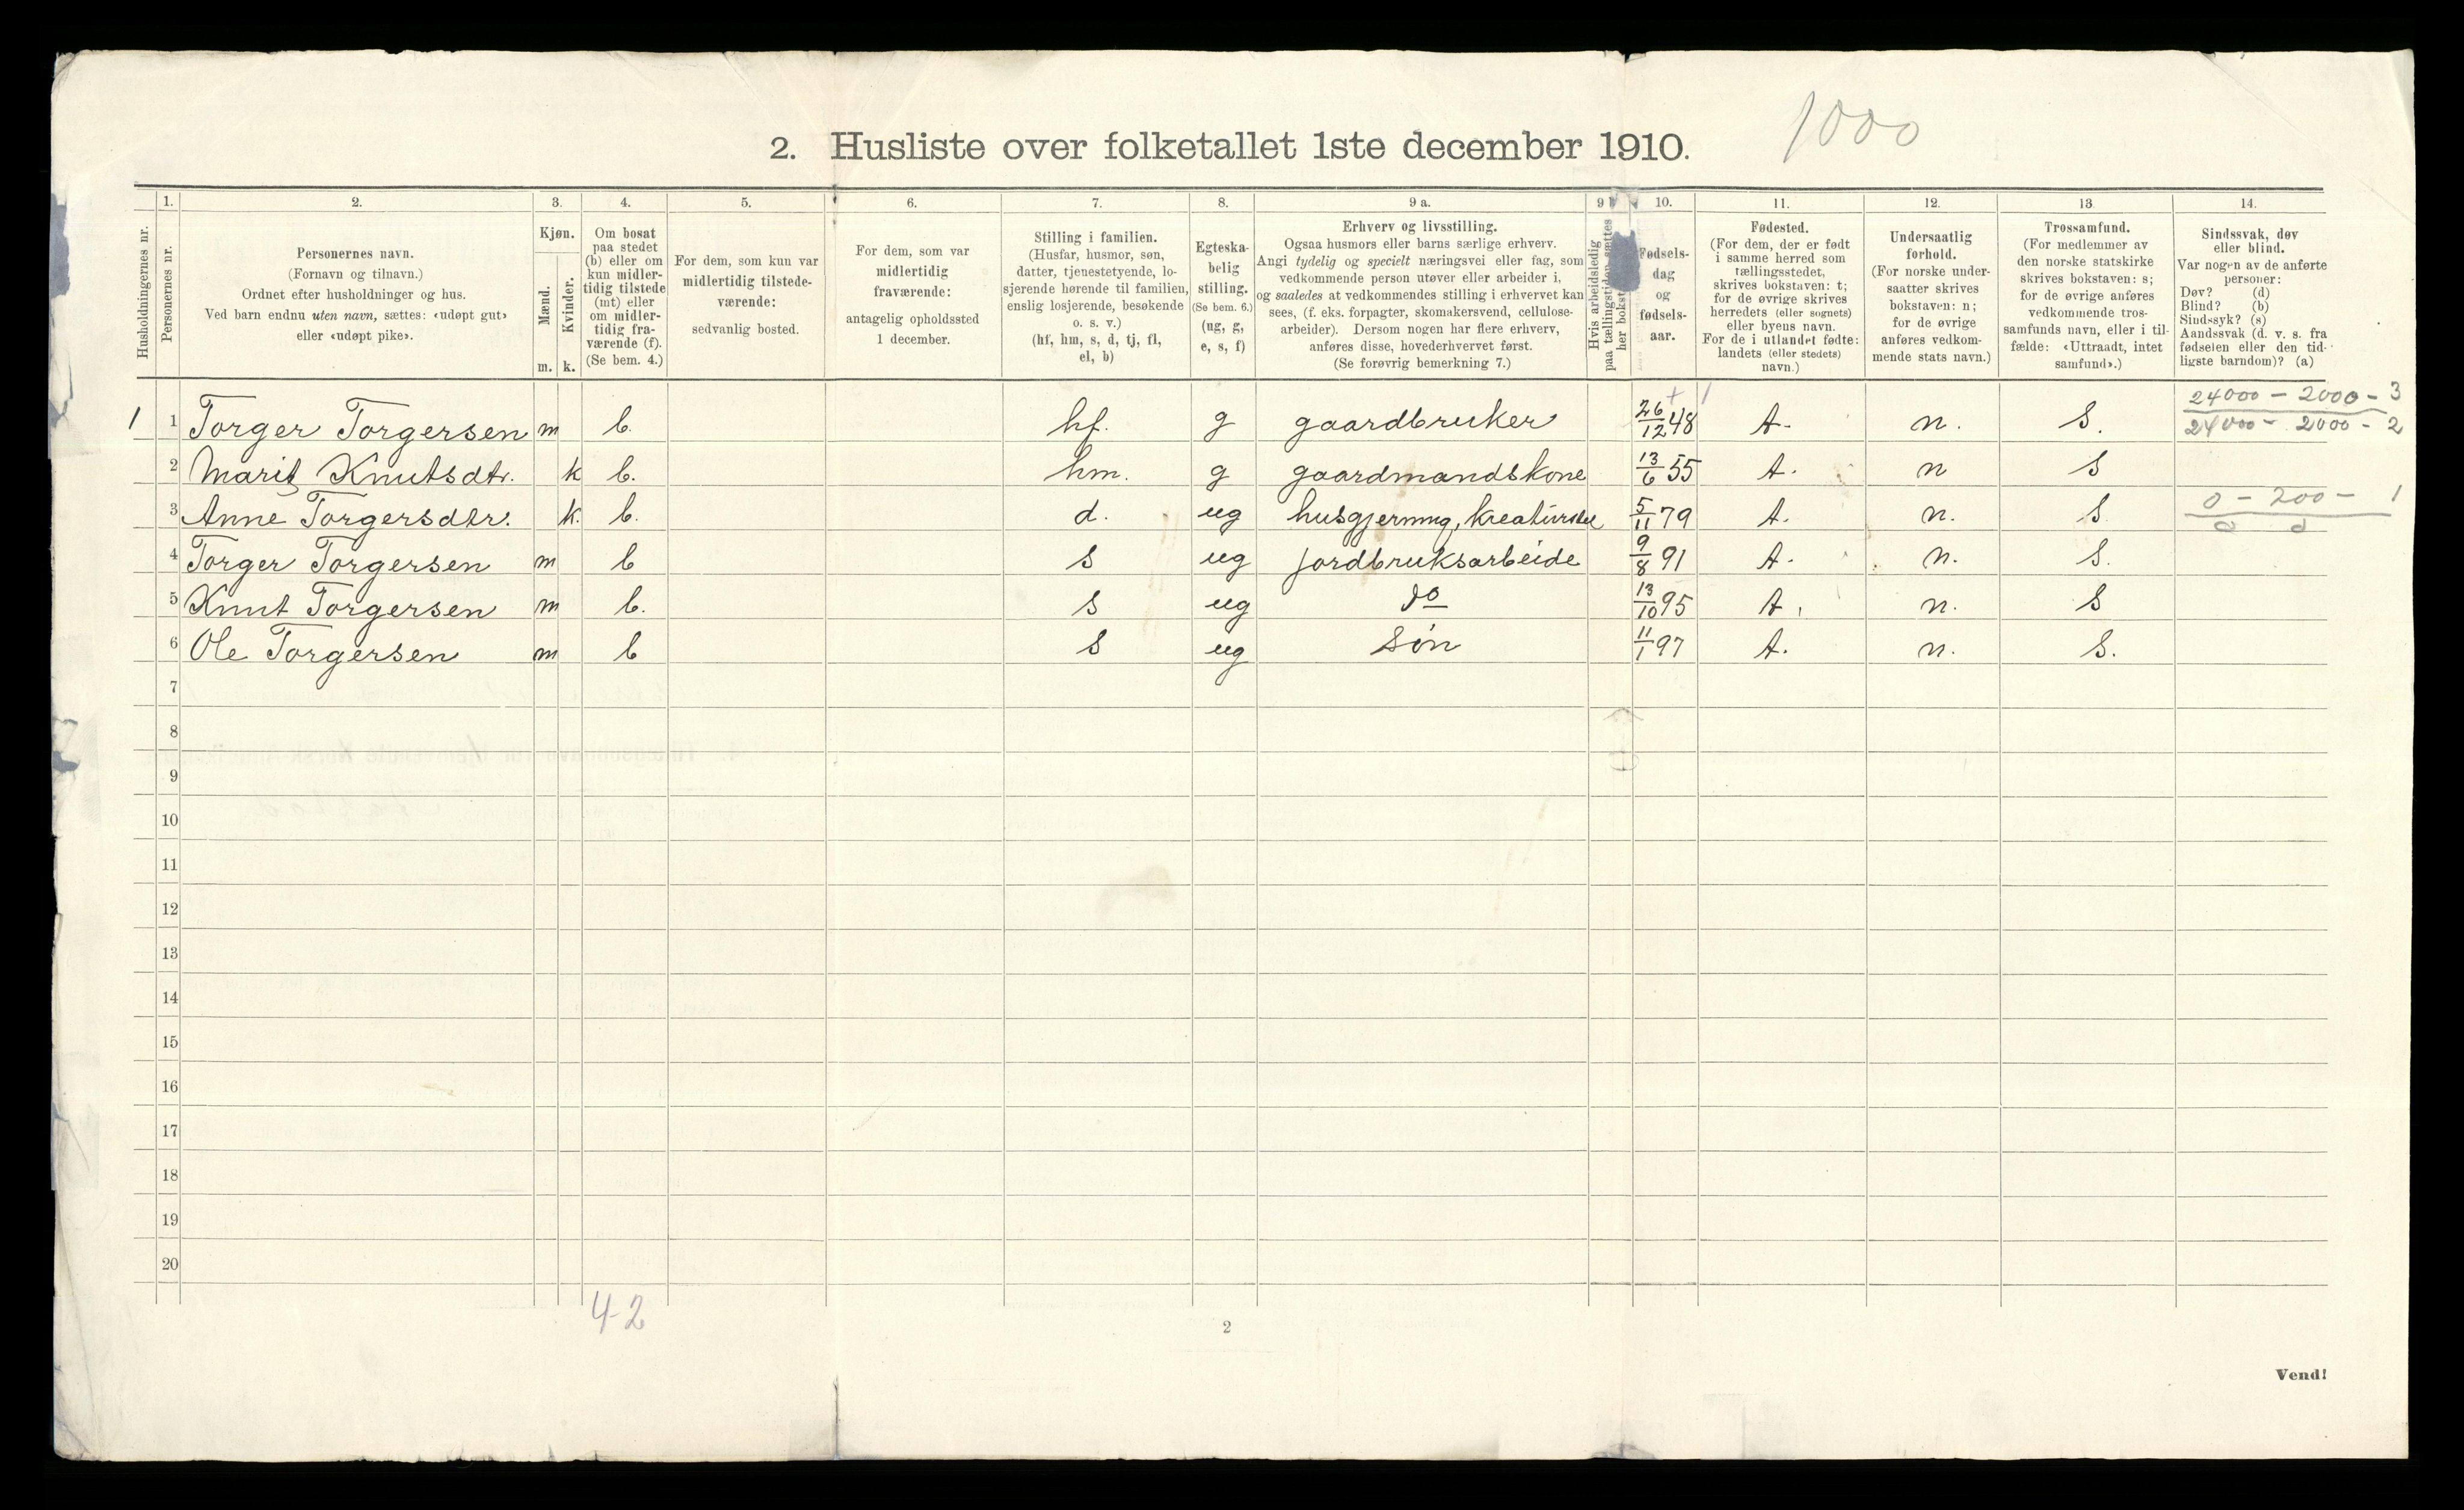 2. Husliste over folketallet 1ste december 1910.
1000
Husholdningernes nr.
1.
Personernes nr.
2.
Personernes navn.
(Fornavn og tilnavn.)
Ordnet efter husholdninger og hus.
Ved barn endnu uten navn, sættes: «udøpt gut»
eller «udøpt pike».
3.
Kjøn.
Mænd.
Kvinder.
m. k.
4.
Om bosat
paa stedet
(b) eller om
kun midler-
tidig tilstede
(mt) eller
om midler-
tidig fra-
værende (f).
(Se bem. 4.)
5.
For dem, som kun var
midlertidig tilstede-
værende:
sedvanlig bosted.
6.
For dem, som var
midlertidig
fraværende:
antagelig opholdssted
1 december.
7.
Stilling i familien.
(Husfar, husmor, søn,
datter, tjenestetyende, lo-
sjerende hørende til familien,
enslig losjerende, besøkende
o. s. v.)
(hf, hm, s, d, tj, fl,
el, b)
8.
Egteska-
belig
stilling.
(Se bem. 6.)
(ug, g,
e, s, f)
9 a.
Erhverv og livsstilling.
Ogsaa husmors eller barns særlige erhverv.
Angi tydelig og specielt næringsvei eller fag, som
vedkommende person utøver eller arbeider i,
og saaledes at vedkommendes stilling i erhvervet kan
sees, (f. eks. forpagter, skomakersvend, cellulose-
arbeider). Dersom nogen har flere erhverv,
anføres disse, hovederhvervet først.
(Se forøvrig bemerkning 7.)
9
Hvis arbeidsledig
paa tællingstiden sættes
her bokst
10.
Fødsels-
dag
og
fødsels-
aar.
11.
Fødested.
(For dem, der er født
i samme herred som
tællingsstedet,
skrives bokstaven: t;
for de øvrige skrives
herredets (eller sognets)
eller byens navn.
For de i utlandet fødte:
landets (eller stedets)
navn.)
12.
Undersaatlig
forhold.
(For norske under-
saatter skrives
bokstaven: n;
for de øvrige
anføres vedkom-
mende stats navn.)
13
Trossamfund.
(For medlemmer av
den norske statskirke
skrives bokstaven: s;
for de øvrige anføres
vedkommende tros-
samfunds navn, eller i til-
fælde: «Uttraadt, intet
samfund».)
14.
Sindssvak, døv
eller blind.
Var nogen av de anførte
personer:
Døv? (d)
Blind? (b)
Sindssyk? (s)
Aandssvak (d. v. s. fra
fødselen eller den tid-
ligste barndom)? (a)
1 1 Torger Torgersen m b. hf. g gaardbruker 26/12 48 t. n. S. 24000 - 2000 - 3
24000 - 2000 - 2
2 Marit Knutsdtr. k b. hm. g gaardmandskone 13/6 55 t. n S
3 Anne Torgersdtr. k. b. d. ug husgjerning, kreaturstel 5/11 79 t. n. S 0 - 200 - 1
4 Torger Torgersen m b s ug jordbruksarbeide 9/8 91 t. n. S.
5 Knut Torgersen m b. s ug do 13/10 95 t. n. S
6 Ole Torgersen m b s ug Søn 11/1 97 t. n. S.
7
8
9
10
11
12
13
14
15
16
17
18
19
20
4-2
2
Vend!